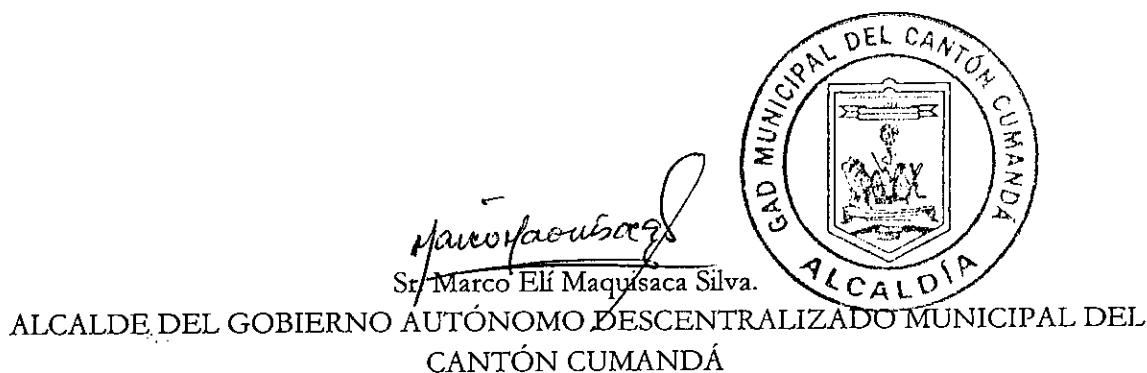 GAD MUNICIPAL DEL CANTÓN CUMANDÁ
ALCALDÍA
Sr. Marco Elí Maquisaca Silva.
ALCALDE DEL GOBIERNO AUTÓNOMO DESCENTRALIZADO MUNICIPAL DEL
CANTÓN CUMANDÁ